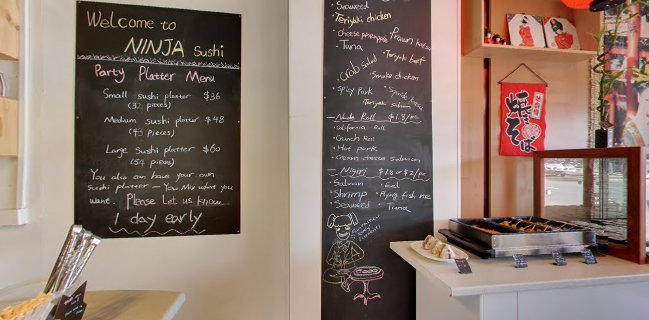 Welcome to
NINJA Sushi
Party Platter Menu
Small sushi platter $36
(32 pieces)
Medium sushi platter $48
(43 Pieces)
Large Sushi platter $60
(54 pieces)
You also can have your own
Sushi platter – You Mix what you
want. Please Let us know
1 day early
Seaweed
Teriyaki chicken
Cheese pineapple
Prawn katsu
Tuna
Teriyaki beef
Crab salad
Smoke chicken
Spicy Pork
Teriyaki Salmon
Nude Roll $1.8/pc
California Roll
Crunch Roll
Hot pork
Cream cheese Salmon
Nigiri $1.8 or $2/pc
Salmon
Eel
Shrimp
Flying fish roe
Seaweed
Tuna
焼きそば